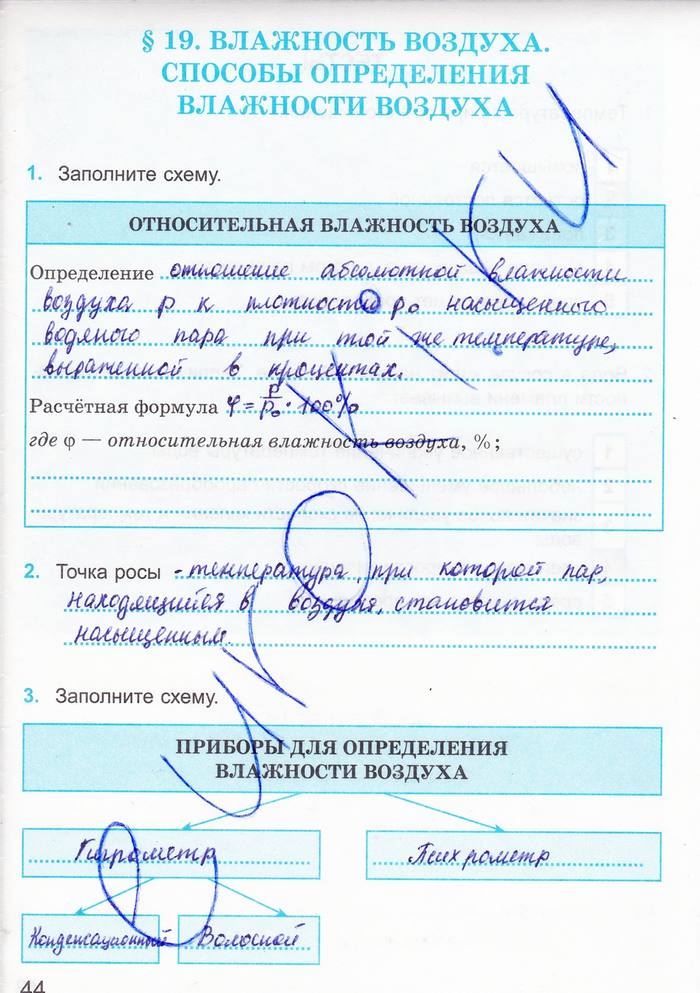 § 19. ВЛАЖНОСТЬ ВОЗДУХА.
СПОСОБЫ ОПРЕДЕЛЕНИЯ
ВЛАЖНОСТИ ВОЗДУХА
1. Заполните схему.
ОТНОСИТЕЛЬНАЯ ВЛАЖНОСТЬ ВОЗДУХА
Определение отношение абсолютной влажности
воздуха ρ к плотности ρ₀ насыщенного
водяного пара при той же температуре,
выраженной в процентах.
Расчётная формула φ = ρ/ρ₀ · 100%
где φ — относительная влажность воздуха, %;
2. Точка росы - температура, при которой пар,
находящийся в воздухе, становится
насыщенным.
3. Заполните схему.
ПРИБОРЫ ДЛЯ ОПРЕДЕЛЕНИЯ
ВЛАЖНОСТИ ВОЗДУХА
Гигрометр
Психрометр
Конденсационный
Волосной
44